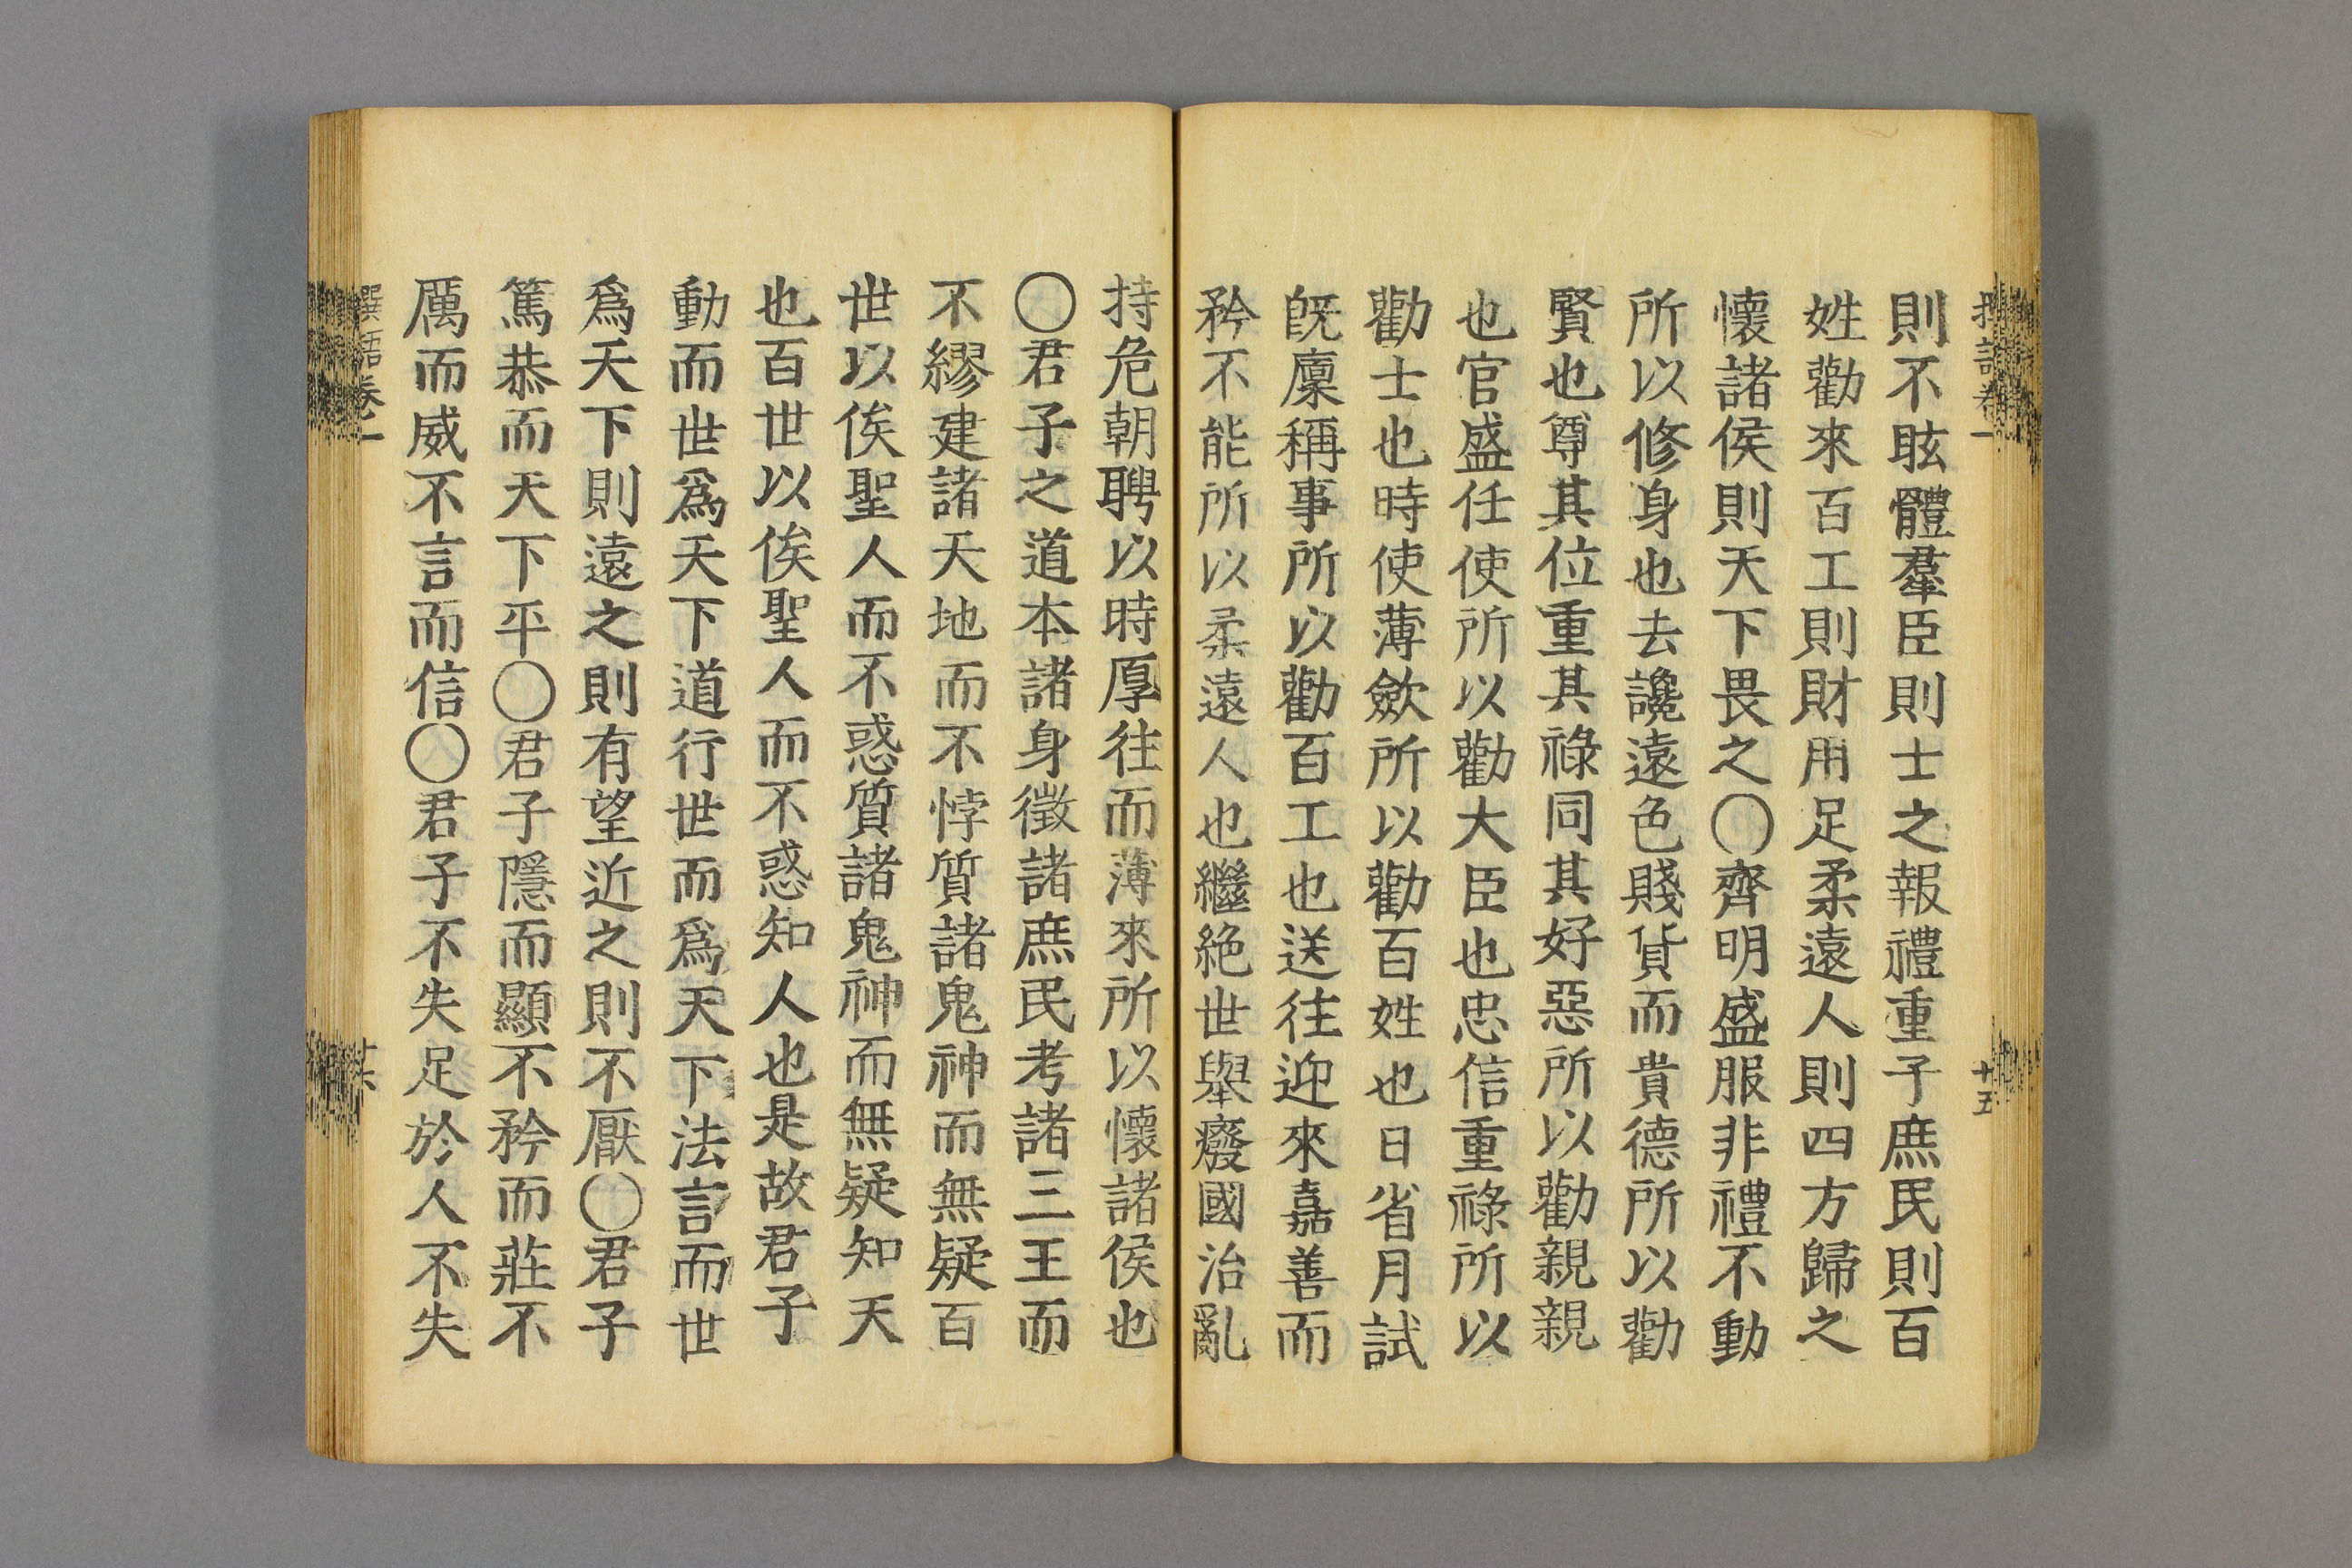 則不眩體羣臣則士之報禮重子庶民則百
姓勸來百工則財用足柔遠人則四方歸之
懷諸侯則天下畏之〇齊明盛服非禮不動
所以修身也去讒遠色賤貨而貴德所以勸
賢也尊其位重其祿同其好惡所以勸親親
也官盛任使所以勸大臣也忠信重祿所以
勸士也時使薄斂所以勸百姓也日省月試
既廩稱事所以勸百工也送往迎來嘉善而
矜不能所以柔遠人也繼絶世舉廢國治亂
持危朝聘以時厚往而薄來所以懷諸侯也
〇君子之道本諸身徵諸庶民考諸三王而
不繆建諸天地而不悖質諸鬼神而無疑百
世以俟聖人而不惑質諸鬼神而無疑知天
也百世以俟聖人而不惑知人也是故君子
動而世爲天下道行世而爲天下法言而世
爲天下則遠之則有望近之則不厭〇君子
篤恭而天下平〇君子隱而顯不矜而莊不
厲而威不言而信〇君子不失足於人不失
卷一
十五
撰語卷一
十六